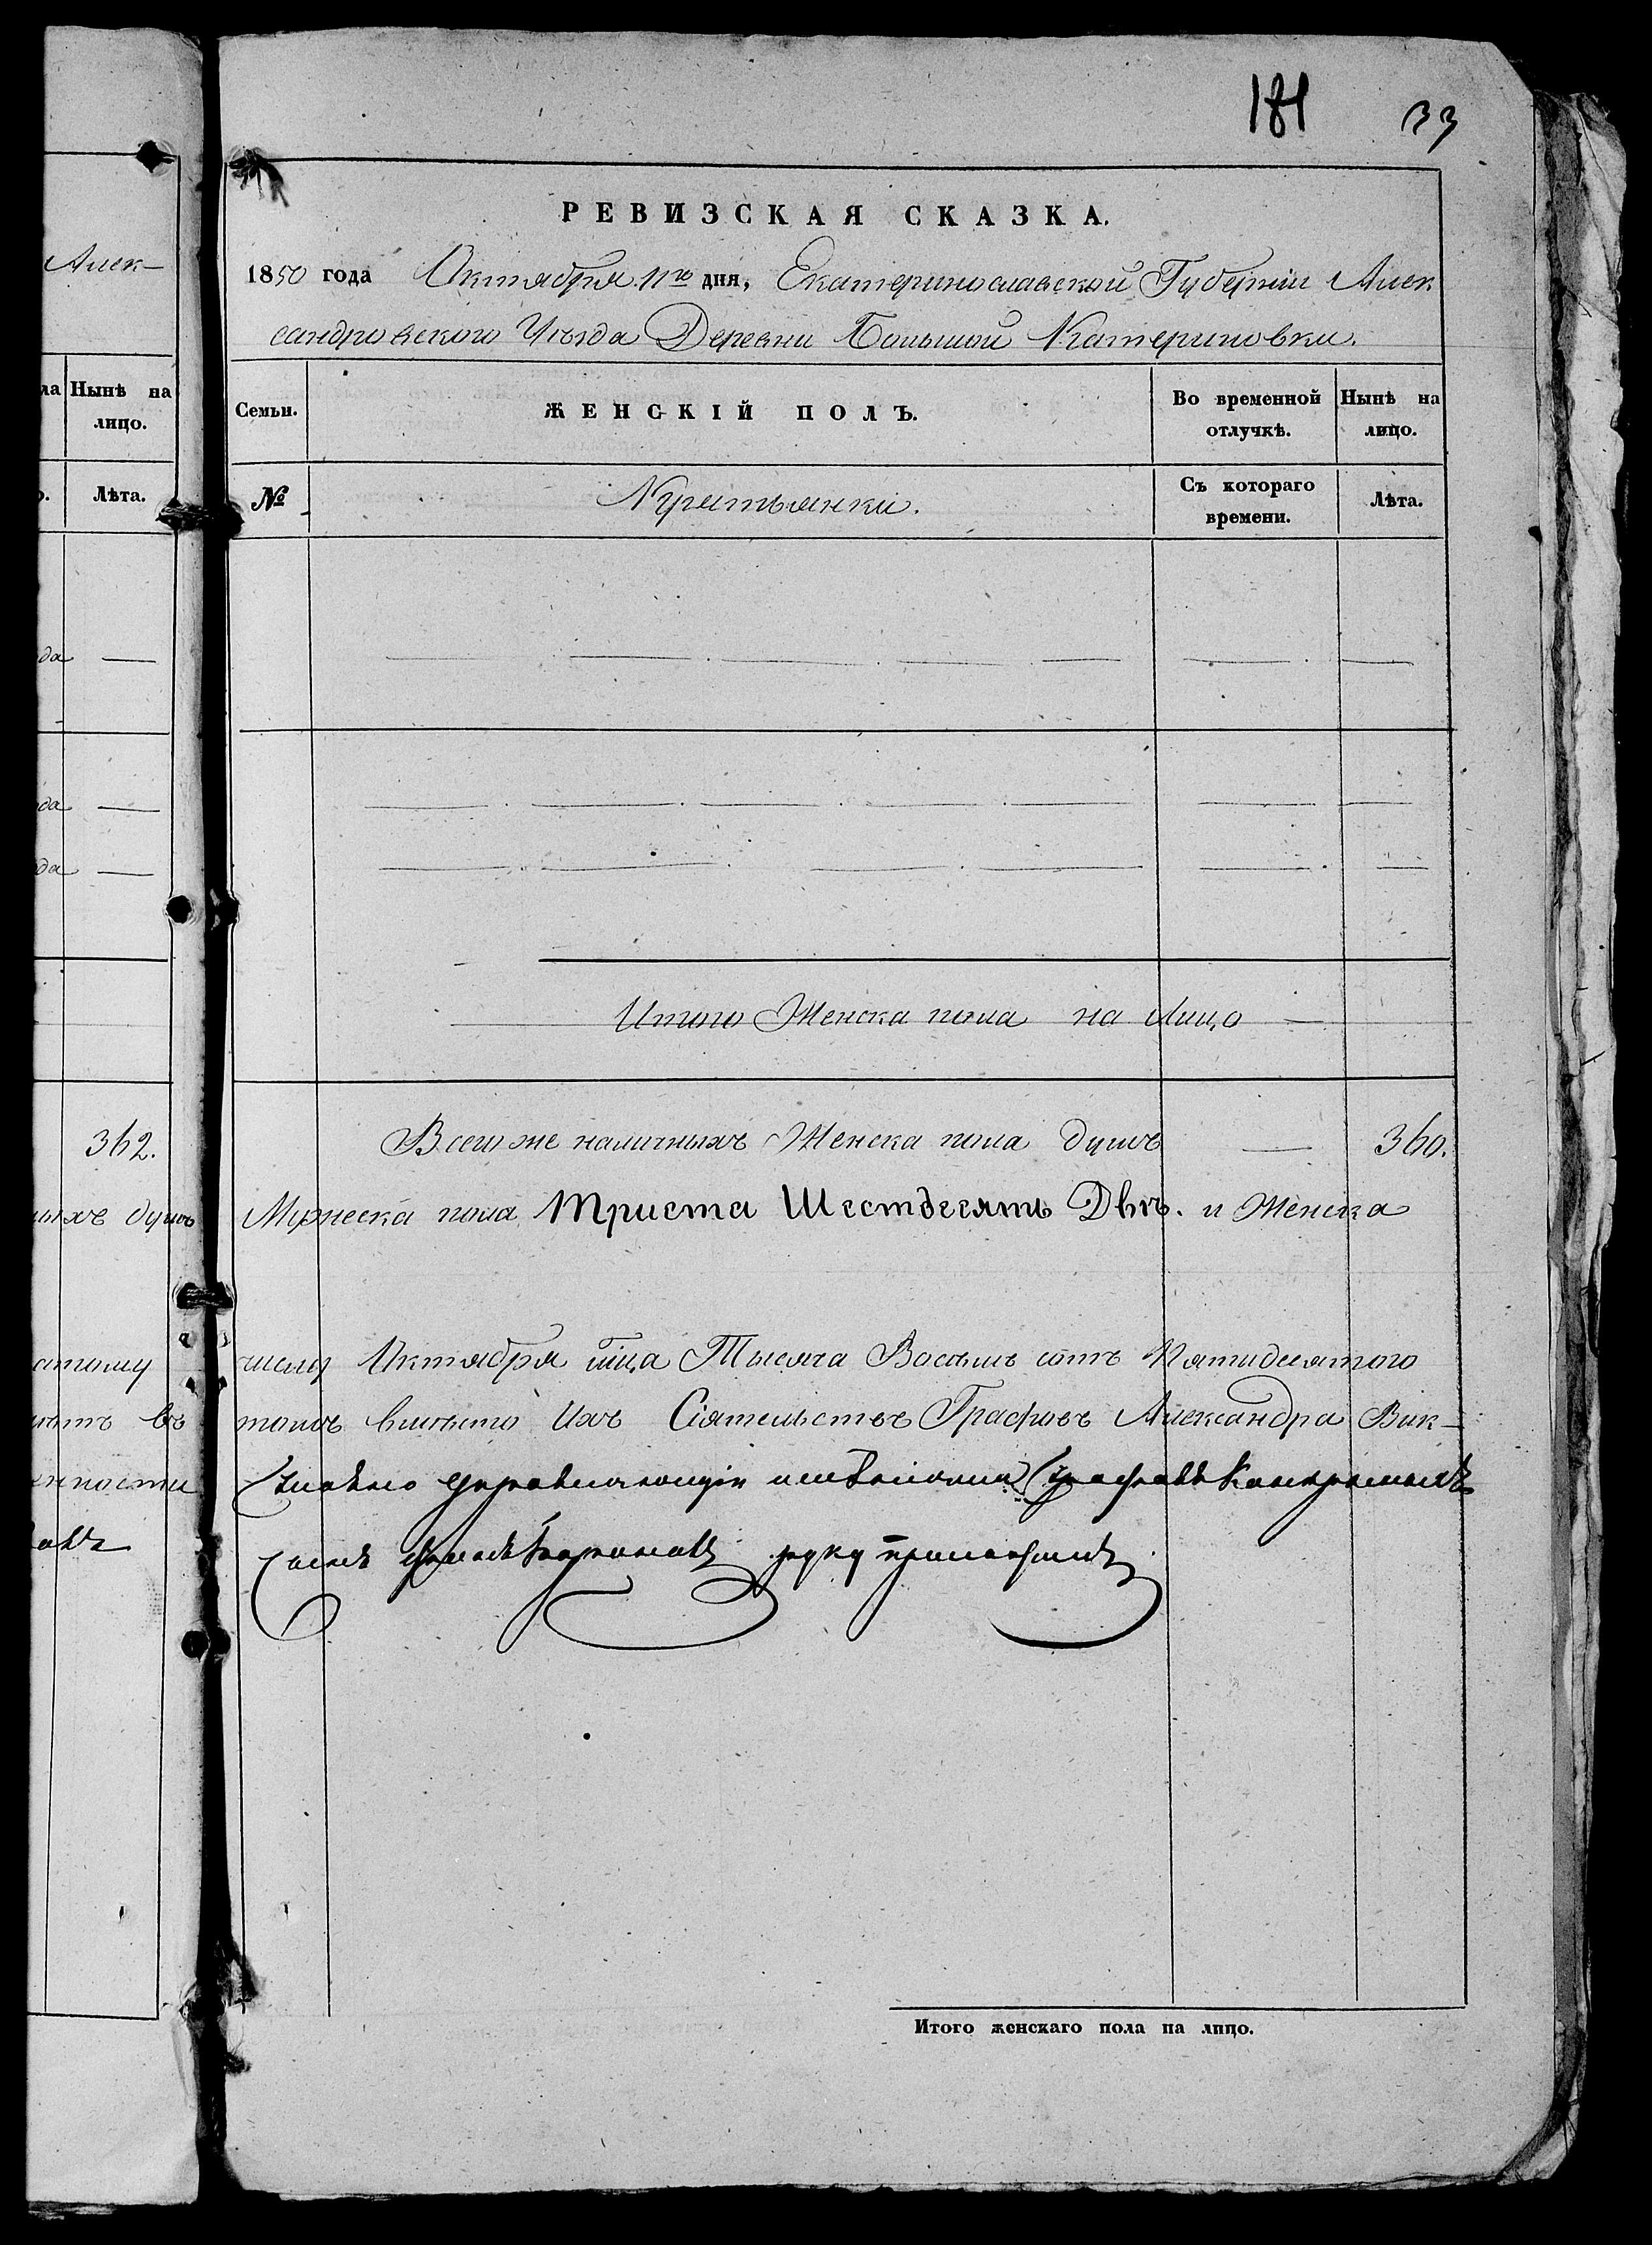 181 33
Алек-
РЕВИЗСКАЯ СКАЗКА.
1850 года Октября 11го дня, Екатеринославской Губерніи Алек
сандровского Уѣзда Деревни Большой Катериновки.
Нынѣ на
лицо.
Лѣта.
Семьи.
ЖЕНСКІЙ ПОЛЪ.
Во временной
отлучкѣ.
Нынѣ на
лицо.
№
Крестьянки.
Съ котораго
времени.
Лѣта.
да —
да —
да —
Итого Женска пола на лицо —
362.
Всего же наличныхъ Женска пола душъ — 360.
душъ Мужеска пола Триста Шестдесять Двѣ. и Женска
числу Октября м̃ца Тысяча Восемь сотъ Пятидесятого
въ томъ вмѣсто Ихъ Сіятельствъ Графовъ Александра Вик-
управляющій имѣніями Графовъ
руку приложилъ
Итого женскаго пола на лицо.